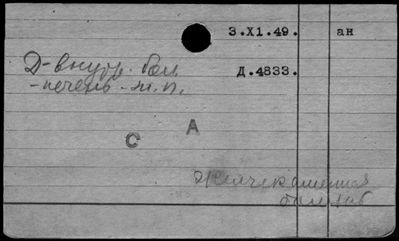 3.XI.49. ан
Д-внутр. бол. Д.4833.
-печень-ж.п.
С А